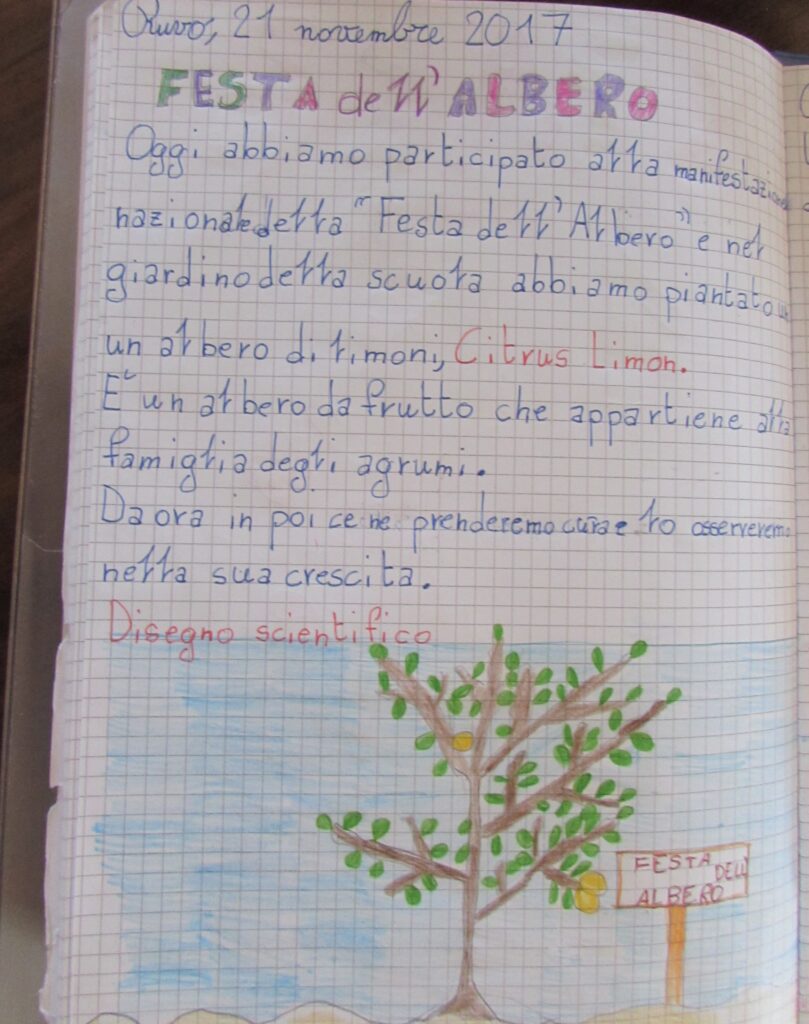 Ruvo, 21 novembre 2017
FESTA dell'ALBERO
Oggi abbiamo participato alla manifestazione
nazionale della "Festa dell'Albero" e nel
giardino della scuola abbiamo piantato un
un albero di limoni, Citrus Limon.
E' un albero da frutto che appartiene alla
famiglia degli agrumi.
Da ora in poi ce ne prenderemo cura e lo osserveremo
nella sua crescita.
Disegno scientifico
FESTA DELL'
ALBERO